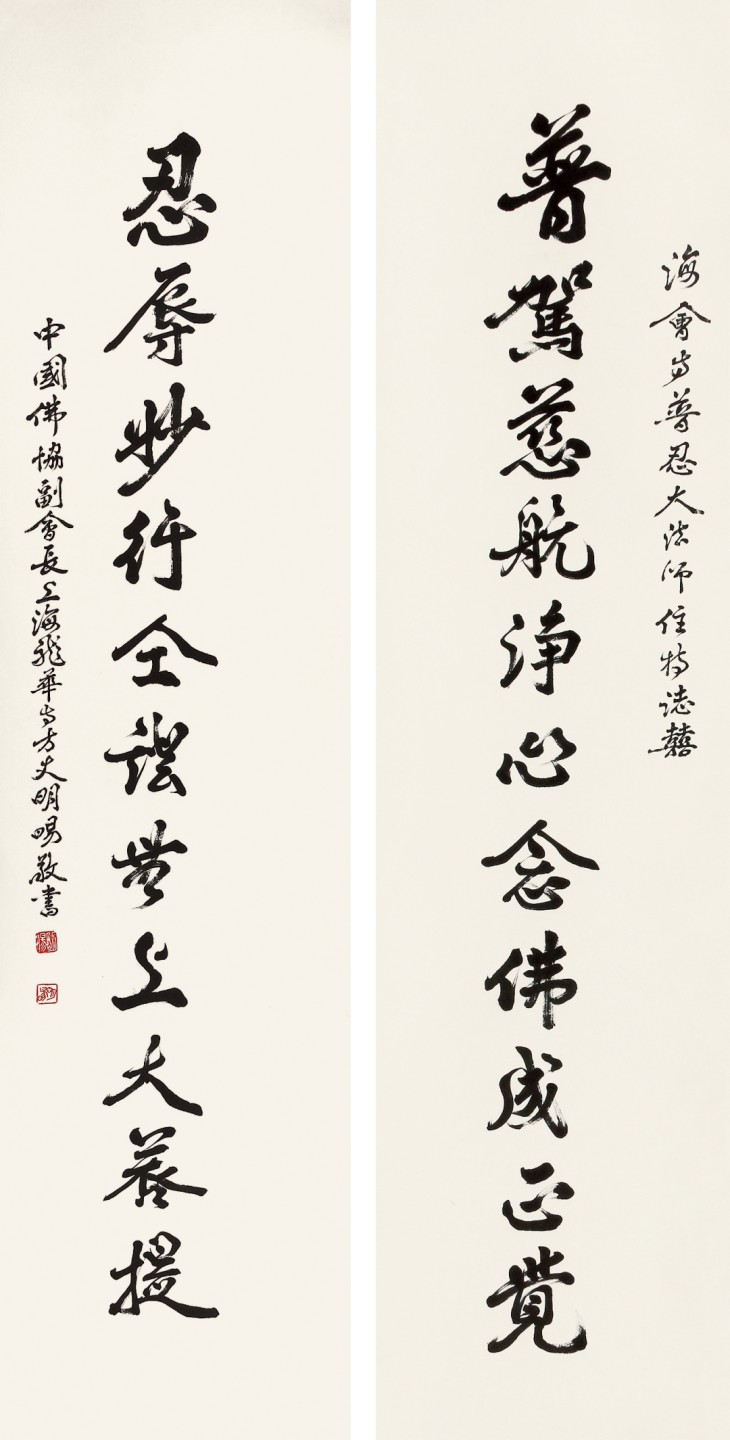 海會寺普忍大法師住持誌囍
普駕慈航淨心念佛成正覺
忍辱妙行全證無上大菩提
中國佛協副會長上海龍華寺方丈明暘敬書